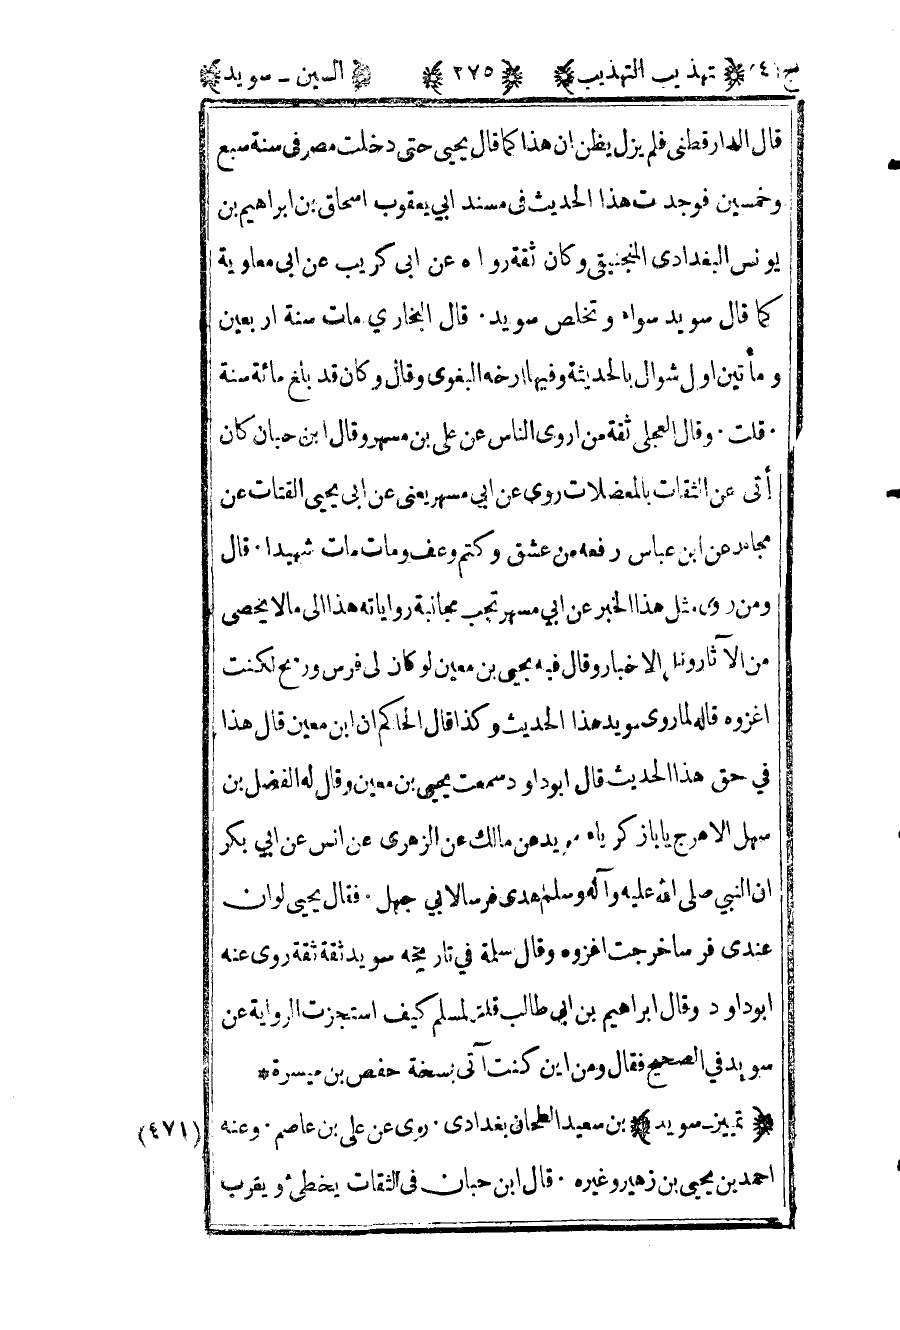 ج(٤) ﴿تهذيب التهذيب﴾ ﴿٢٧٥﴾ ﴿السين - سويد﴾
قال الدارقطنى فلم يزل يظن ان هذا كما قال يحيى حتى دخلت مصر فى سنة سبع
وخمسين فوجدت هذا الحديث فى مسند ابي يعقوب اسحاق بن ابراهيم بن
يونس البغدادى المنجنيقى وكان ثقة رواه عن ابى كريب عن ابى معاوية
كما قال سويد سواء وتخلص سويد · قال البخاري مات سنة اربعين
ومأتين اول شوال بالحديثة وفيها ارخه البغوى وقال وكان قد بلغ مائة سنة
· قلت · وقال العجلى ثقة من اروى الناس عن على بن مسهر وقال ابن حبان كان
أتى عن الثقات بالمعضلات روى عن ابي مسهر يعنى عن ابى يحيى القتات عن
مجاهد عن ابن عباس رفعه من عشق وكتم وعف ومات مات شهيدا · قال
ومن روى مثل هذا الخبر عن ابي مسهر تجب مجانبة رواياته هذا الى ما لا يحصى
من الآثار وتلك الاخبار وقال فيه يحيى بن معين لو كان لى فرس ورمح لكنت
اغزوه قاله لما روى سويد هذا الحديث وكذا قال الحاكم ان ابن معين قال هذا
في حق هذا الحديث قال ابوداود سمعت يحيى بن معين وقال له الفضل بن
سهل الاعرج يا با زكرياء سويد عن مالك عن الزهرى عن انس عن ابي بكر
ان النبي صلى الله عليه وآله وسلم اهدى فرسا لابي جهل · فقال يحيى لو ان
عندى فرسا خرجت اغزوه وقال سلمة في تاريخه سويد ثقة ثقة روى عنه
ابوداود وقال ابراهيم بن ابي طالب قلت لمسلم كيف استجزت الرواية عن
سويد في الصحيح فقال ومن اين كنت آتى بنسخة حفص بن ميسرة *
﴿تمييز - سويد﴾ بن سعيد الطحان بغدادى · روى عن على بن عاصم · وعنه (٤٧١)
احمد بن يحيى بن زهير وغيره · قال ابن حبان فى الثقات يخطئ ويغرب